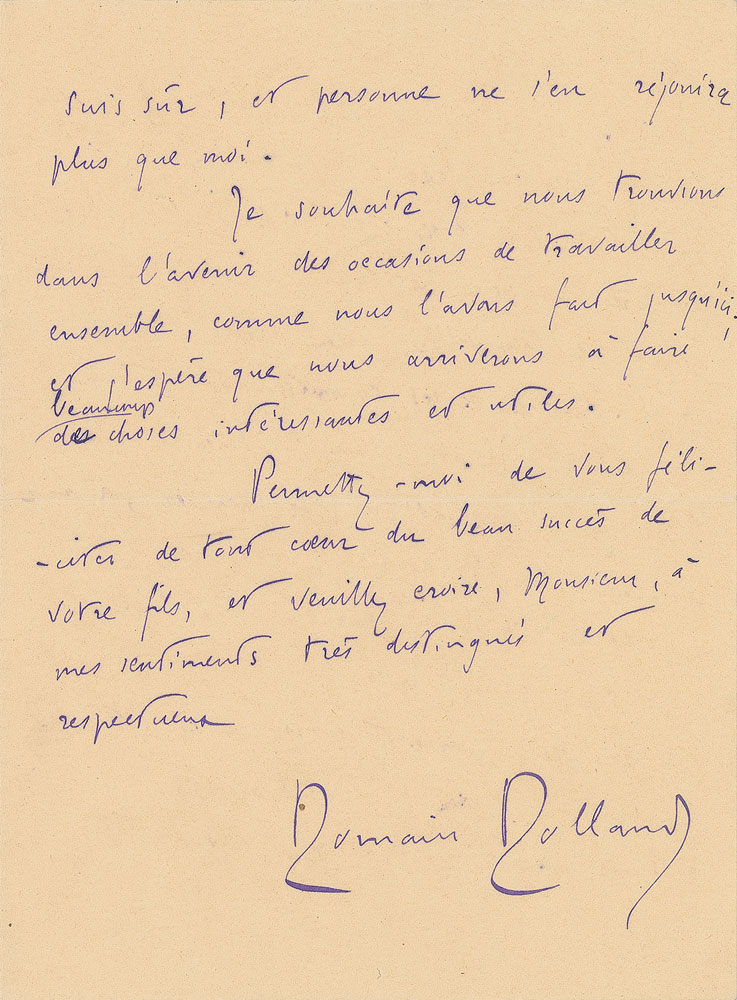 suis sûr, et personne ne s'en réjouira
plus que moi.
Je souhaite que nous trouvions
dans l'avenir des occasions de travailler
ensemble, comme nous l'avons fait jusqu'ici.
et j'espère que nous arriverons à faire
beaucoup
des choses intéressantes et utiles.
Permettez-moi de vous féli-
-citer de tout cœur du beau succès de
votre fils, et veuillez croire, Monsieur, à
mes sentiments très distingués et
respectueux
Romain Rolland